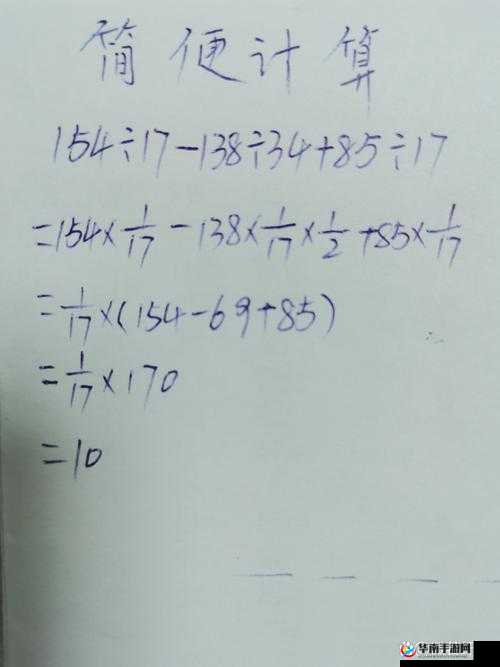 简便计算
154÷17-138÷34+85÷17
=154×1/17-138×1/17×1/2+85×1/17
=1/17×(154-69+85)
=1/17×170
=10
华南手游网